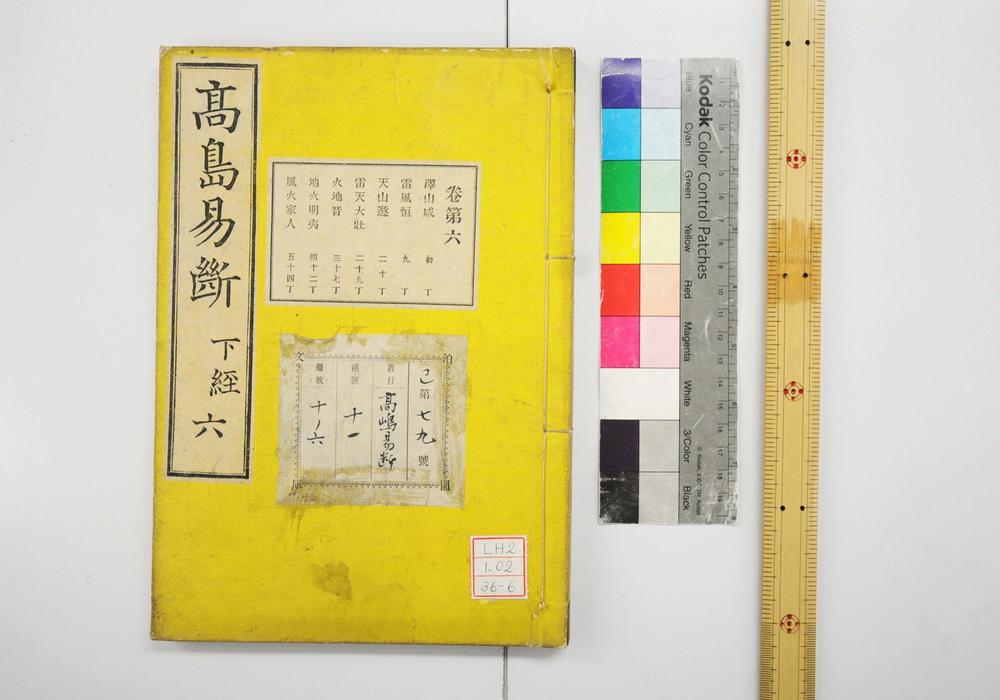 高島易斷 下經 六
卷第六
澤山咸 初丁
雷風恒 九丁
天山遯 二十丁
雷天大壯 二十九丁
火地晋 三十七丁
地火明夷 四十二丁
風火家人 五十四丁
泊園文庫
第七九號
書目 高嶋易断
函號 十一
冊數 十ノ六
LH2
1.02
36-6
Kodak Color Control Patches
Blue
Cyan
Green
Yellow
Red
Magenta
White
3/Color
Black